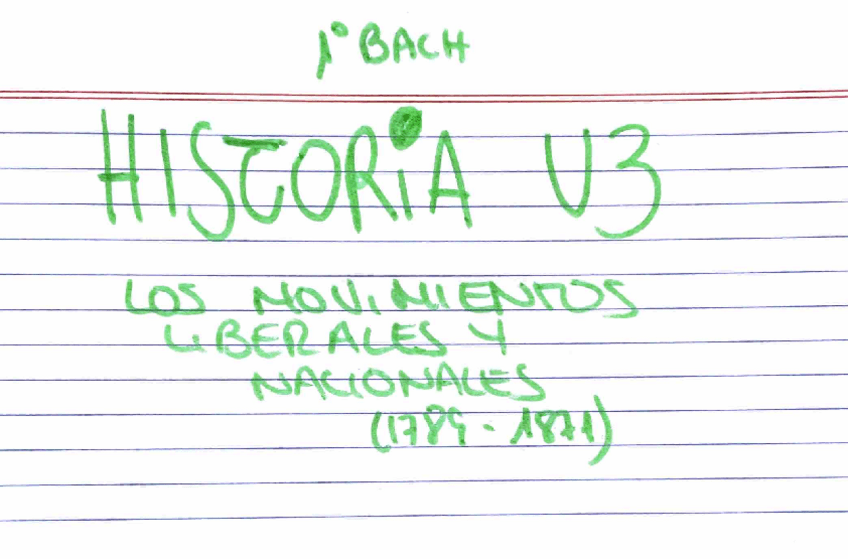 1º BACH
HISTORiA U3
LOS MOViMIENTOS
LiBERALES Y
NACIONALES
(1789 - 1871)